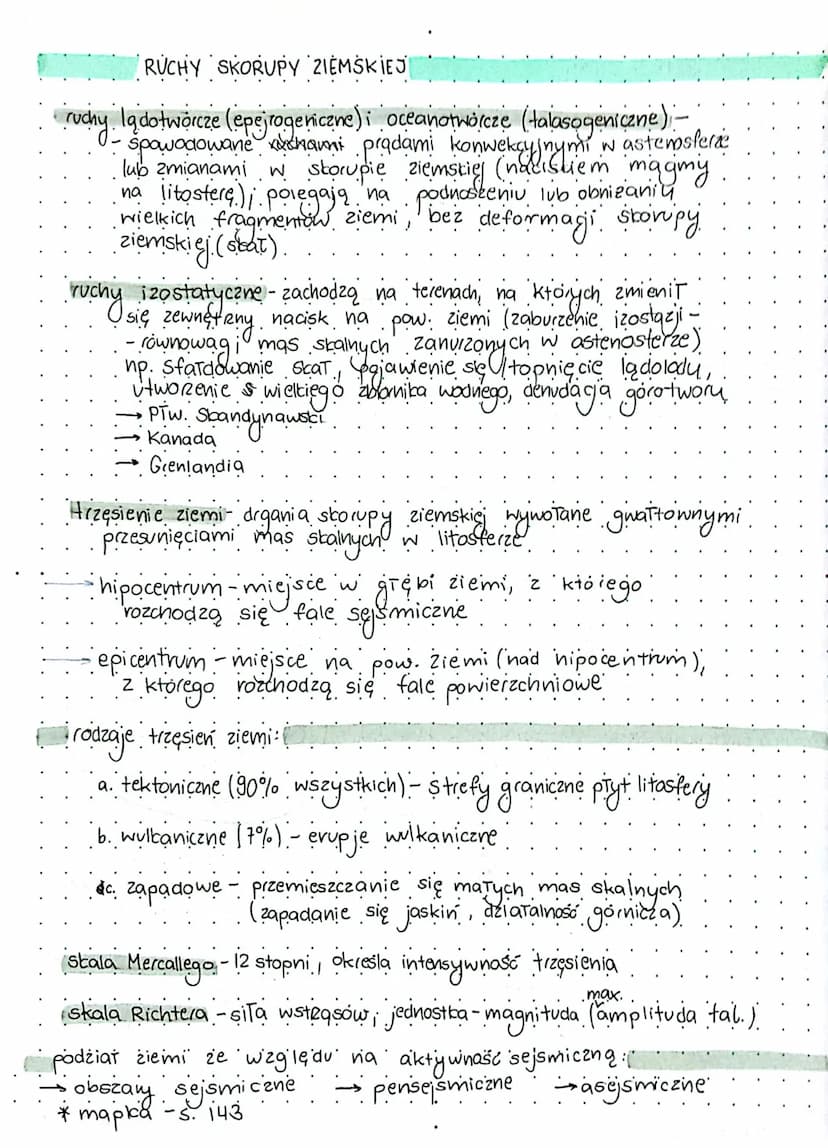 RUCHY SKORUPY ZIEMSKIEJ
ruchy lądotwórcze (epejrogeniczne) i oceanotwórcze (talasogeniczne) -
- spowodowane prądami konwekcyjnymi w astenosferze
lub zmianami w skorupie ziemskiej (naciskiem magmy
na litosferę); polegają na podnoszeniu lub obniżaniu
wielkich fragmentów ziemi, bez deformacji skorupy
ziemskiej (skał)
ruchy izostatyczne - zachodzą na terenach, na których zmienił
się zewnętrzny nacisk na pow. ziemi (zaburzenie izostazji -
- równowagi mas skalnych zanurzonych w astenosferze)
np. sfałdowanie skał, pojawienie się / topnięcie lądolodu,
utworzenie wielkiego zbiornika wodnego, denudacja górotworu
→ Płw. Skandynawski
→ Kanada
→ Grenlandia
trzęsienie ziemi - drgania skorupy ziemskiej wywołane gwałtownymi
przesunięciami mas skalnych w litosferze
→ hipocentrum - miejsce w głębi ziemi, z którego
rozchodzą się fale sejsmiczne
→ epicentrum - miejsce na pow. ziemi (nad hipocentrum),
z którego rozchodzą się fale powierzchniowe
rodzaje trzęsień ziemi:
a. tektoniczne (90% wszystkich) - strefy graniczne płyt litosfery
b. wulkaniczne (7%) - erupcje wulkaniczne
c. zapadowe - przemieszczanie się małych mas skalnych
(zapadanie się jaskiń, działalność górnicza)
skala Mercallego - 12 stopni, określa intensywność trzęsienia
skala Richtera - siła wstrząsów, jednostka - magnituda (max. amplituda fal.)
podział ziemi ze względu na aktywność sejsmiczną:
→ obszary sejsmiczne → pensejsmiczne → asejsmiczne
* mapka - s. 143